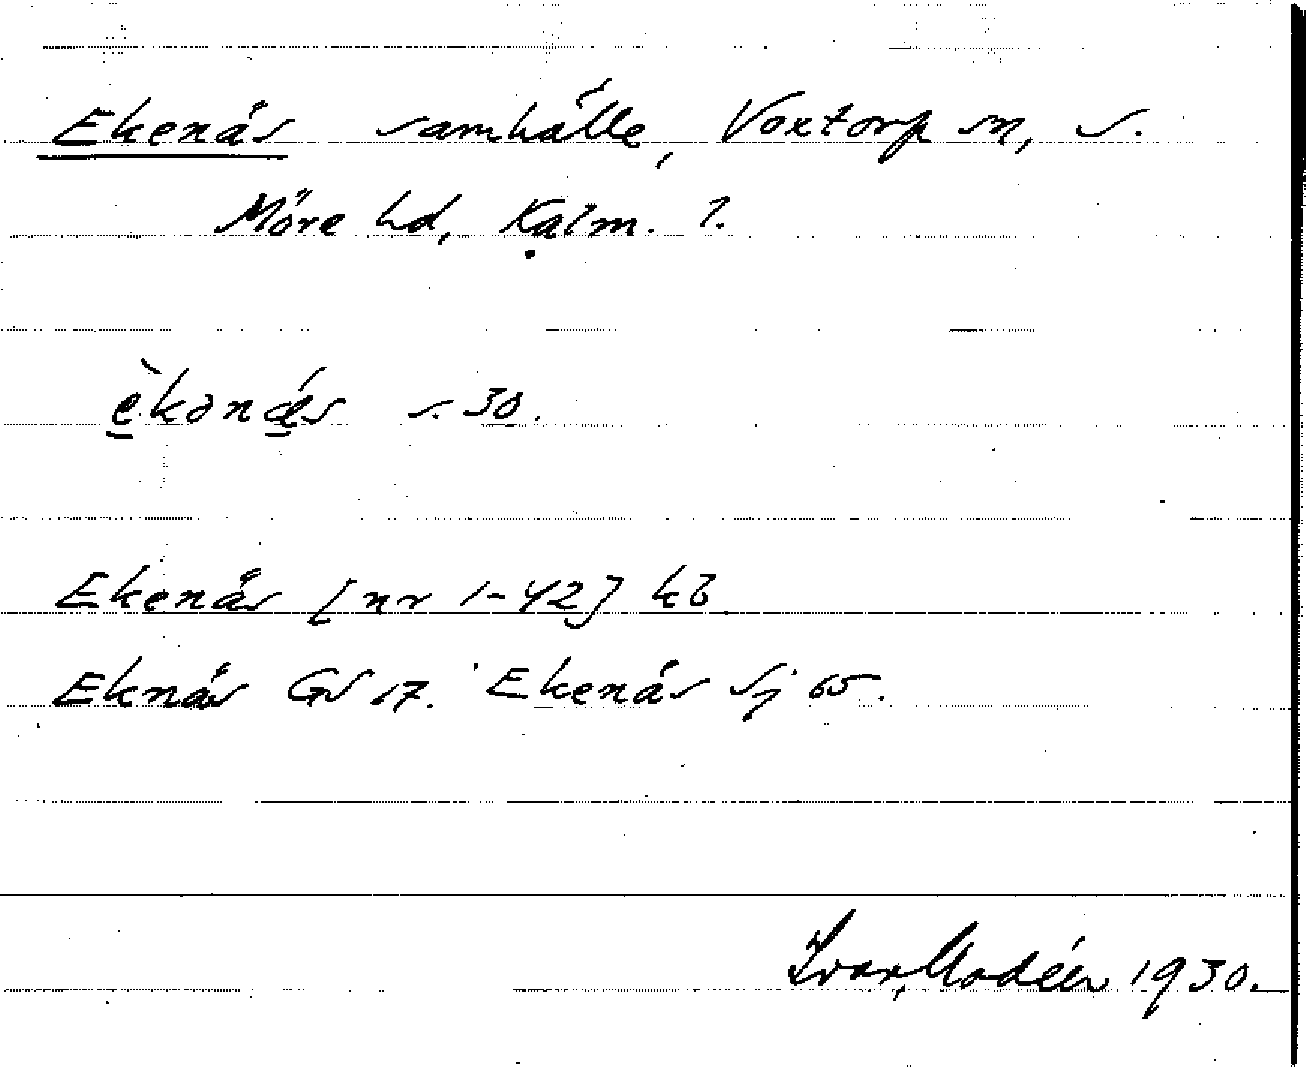 Ekenäs samhälle, Voxtorp sn, S.
Möre hd, Kalm. l.
èkənǽs s. 30.
Ekenäs [nr 1-42] kb
Eknäs GS 17. Ekenäs Sj 65.
Ivar Modéer 1930.